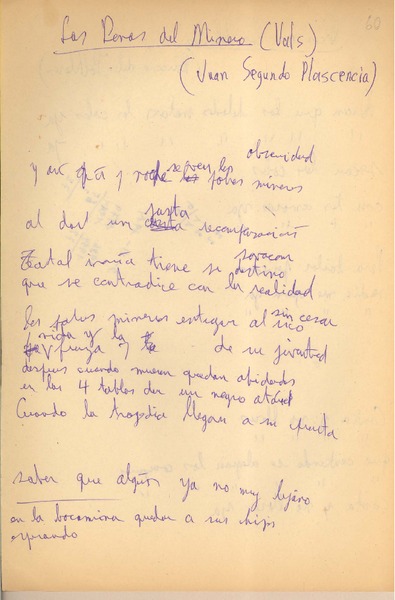 60
Las Penas del Minero (Vals)
(Juan Segundo Plascencia)
obscuridad
y así día y noche se ven los pobres mineros
justa
al dar un recompensación
Fatal inicia tiene su destino
que se contradice con la realidad
los pobres mineros entregan al rico sin cesar
vida y la
fuerza y la de su juventud
despues cuando mueren quedan olvidados
en las 4 tablas de un negro ataud
Cuando la tragedia llegan a su puerta
saber que algún ya no muy lejano
en la bocamina quedan a sus hijos
esperando